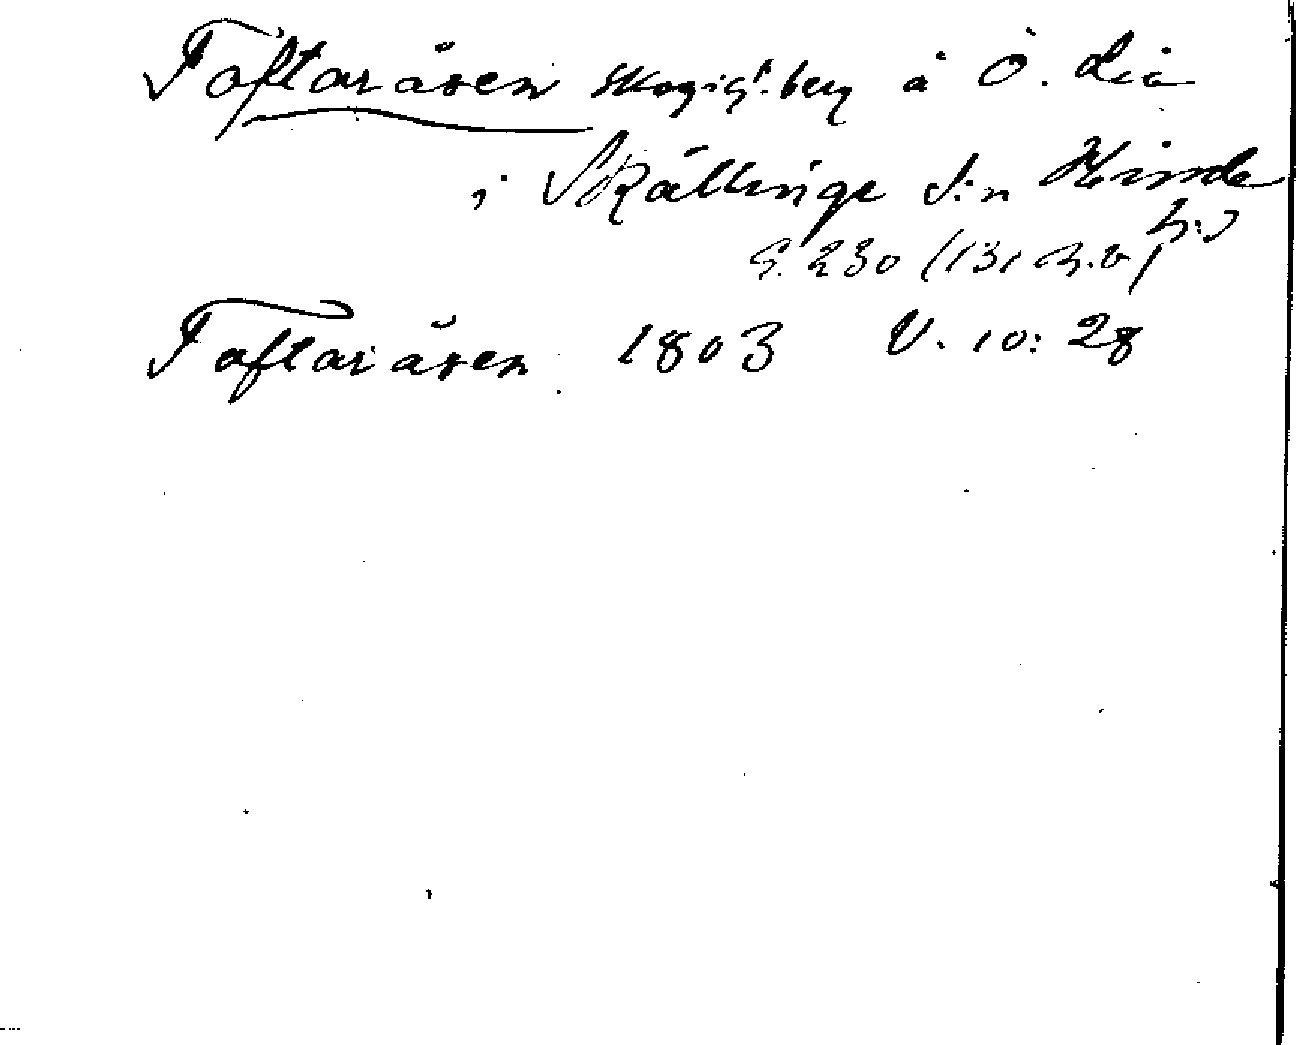 Toftaråsen skogigt berg å Ö. Lia
i Skällinge s:n Himle
h:d
G. 230 (131 n.v)
Toftaråsen 1803 V. 10: 28